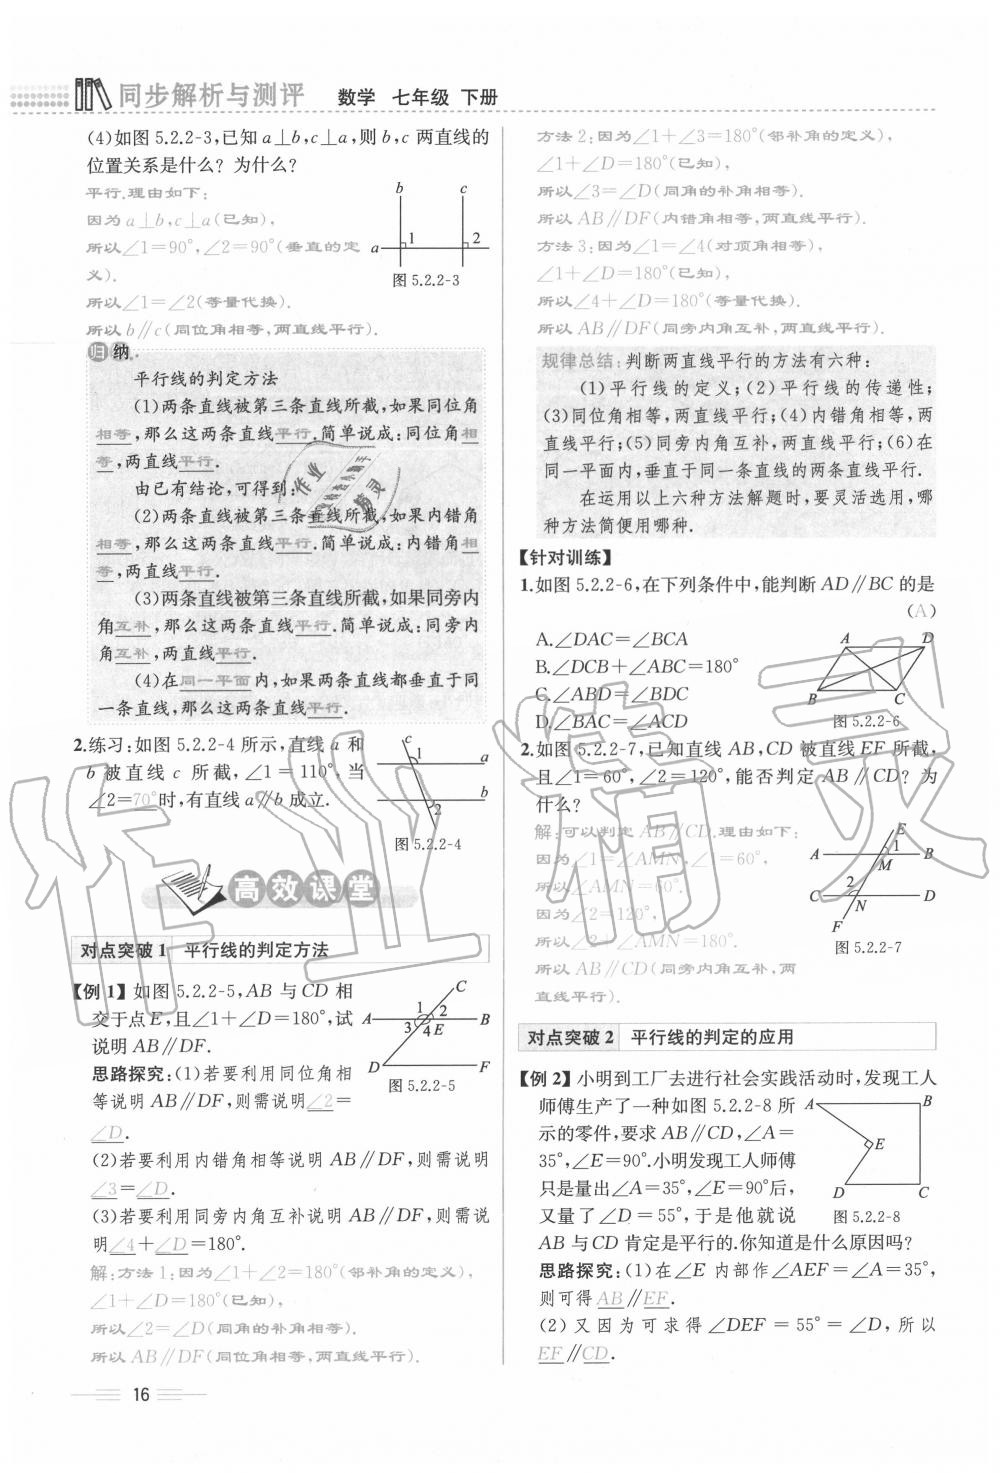 同步解析与测评 数学 七年级 下册
(4)如图 5.2.2-3,已知 a⊥b,c⊥a,则 b,c 两直线的
位置关系是什么? 为什么?
平行.理由如下:
因为 a⊥b,c⊥a(已知),
所以∠1=90°,∠2=90°(垂直的定
义).
所以∠1=∠2(等量代换).
所以 b∥c(同位角相等,两直线平行).
b c
a 1 2
图 5.2.2-3
归纳
平行线的判定方法
(1)两条直线被第三条直线所截,如果同位角
相等,那么这两条直线平行.简单说成:同位角相
等,两直线平行.
由已有结论,可得到:
(2)两条直线被第三条直线所截,如果内错角
相等,那么这两条直线平行.简单说成:内错角相
等,两直线平行.
(3)两条直线被第三条直线所截,如果同旁内
角互补,那么这两条直线平行.简单说成:同旁内
角互补,两直线平行.
(4)在同一平面内,如果两条直线都垂直于同
一条直线,那么这两条直线平行.
2.练习:如图 5.2.2-4 所示,直线 a 和
b 被直线 c 所截,∠1=110°,当
∠2=70°时,有直线 a∥b 成立.
c
1 a
b
2
图 5.2.2-4
高效课堂
对点突破 1 平行线的判定方法
【例 1】如图 5.2.2-5,AB 与 CD 相
交于点 E,且∠1+∠D=180°,试
说明 AB∥DF.
思路探究:(1)若要利用同位角相
等说明 AB∥DF,则需说明∠2=
∠D.
(2)若要利用内错角相等说明 AB∥DF,则需说明
∠3=∠D.
(3)若要利用同旁内角互补说明 AB∥DF,则需说
明∠4+∠D=180°.
C
1 2
A B
3 4 E
D F
图 5.2.2-5
解:方法 1:因为∠1+∠2=180°(邻补角的定义),
∠1+∠D=180°(已知),
所以∠2=∠D(同角的补角相等).
所以 AB∥DF(同位角相等,两直线平行).
16
方法 2:因为∠1+∠3=180°(邻补角的定义),
∠1+∠D=180°(已知),
所以∠3=∠D(同角的补角相等).
所以 AB∥DF(内错角相等,两直线平行).
方法 3:因为∠1=∠4(对顶角相等),
∠1+∠D=180°(已知),
所以∠4+∠D=180°(等量代换).
所以 AB∥DF(同旁内角互补,两直线平行).
规律总结:判断两直线平行的方法有六种:
(1)平行线的定义;(2)平行线的传递性;
(3)同位角相等,两直线平行;(4)内错角相等,两
直线平行;(5)同旁内角互补,两直线平行;(6)在
同一平面内,垂直于同一条直线的两条直线平行.
在运用以上六种方法解题时,要灵活选用,哪
种方法简便用哪种.
【针对训练】
1.如图 5.2.2-6,在下列条件中,能判断 AD∥BC 的是
(A)
A.∠DAC=∠BCA
B.∠DCB+∠ABC=180°
C.∠ABD=∠BDC
D.∠BAC=∠ACD
A D
B C
图 5.2.2-6
2.如图 5.2.2-7,已知直线 AB,CD 被直线 EF 所截,
且∠1=60°,∠2=120°,能否判定 AB∥CD? 为
什么?
解:可以判定 AB∥CD.理由如下:
因为∠1=∠AMN,∠1=60°,
所以∠AMN=60°.
因为∠2=120°,
所以∠2+∠AMN=180°.
所以 AB∥CD(同旁内角互补,两
直线平行).
E
A 1 B
M
2
C D
N
F
图 5.2.2-7
对点突破 2 平行线的判定的应用
【例 2】小明到工厂去进行社会实践活动时,发现工人
师傅生产了一种如图 5.2.2-8 所
示的零件,要求 AB∥CD,∠A=
35°,∠E=90°.小明发现工人师傅
只是量出∠A=35°,∠E=90°后,
又量了∠D=55°,于是他就说
AB 与 CD 肯定是平行的.你知道是什么原因吗?
A B
E
D C
图 5.2.2-8
思路探究:(1)在∠E 内部作∠AEF=∠A=35°,
则可得 AB∥EF.
(2)又因为可求得∠DEF=55°=∠D,所以
EF∥CD.
作业精灵